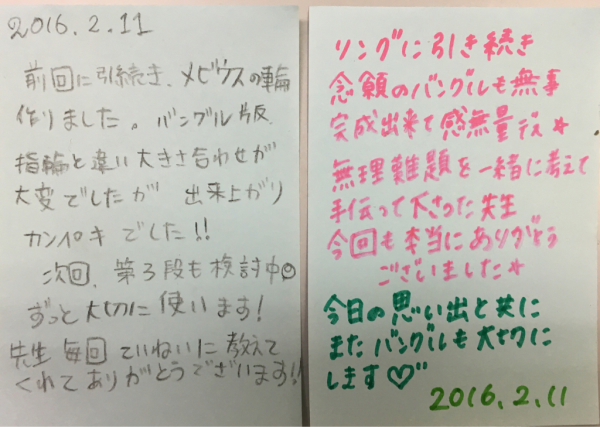 2016.2.11
前回に引続き、メビウスの輪
作りました。バングル版
指輪と違い大きさ合わせが
大変でしたが 出来上がり
カンペキでした!!
次回、第3段も検討中。
ずっと大切に使います!
先生 毎回 ていねいに教えて
くれてありがとうございます!!
リングに引き続き
念願のバングルも無事
完成出来て感無量デス☆
無理難題を一緒に考えて
手伝って下さった先生
今回も本当にありがとう
ございました☆
今日の思い出と共に
またバングルも大切に
します♡
2016.2.11